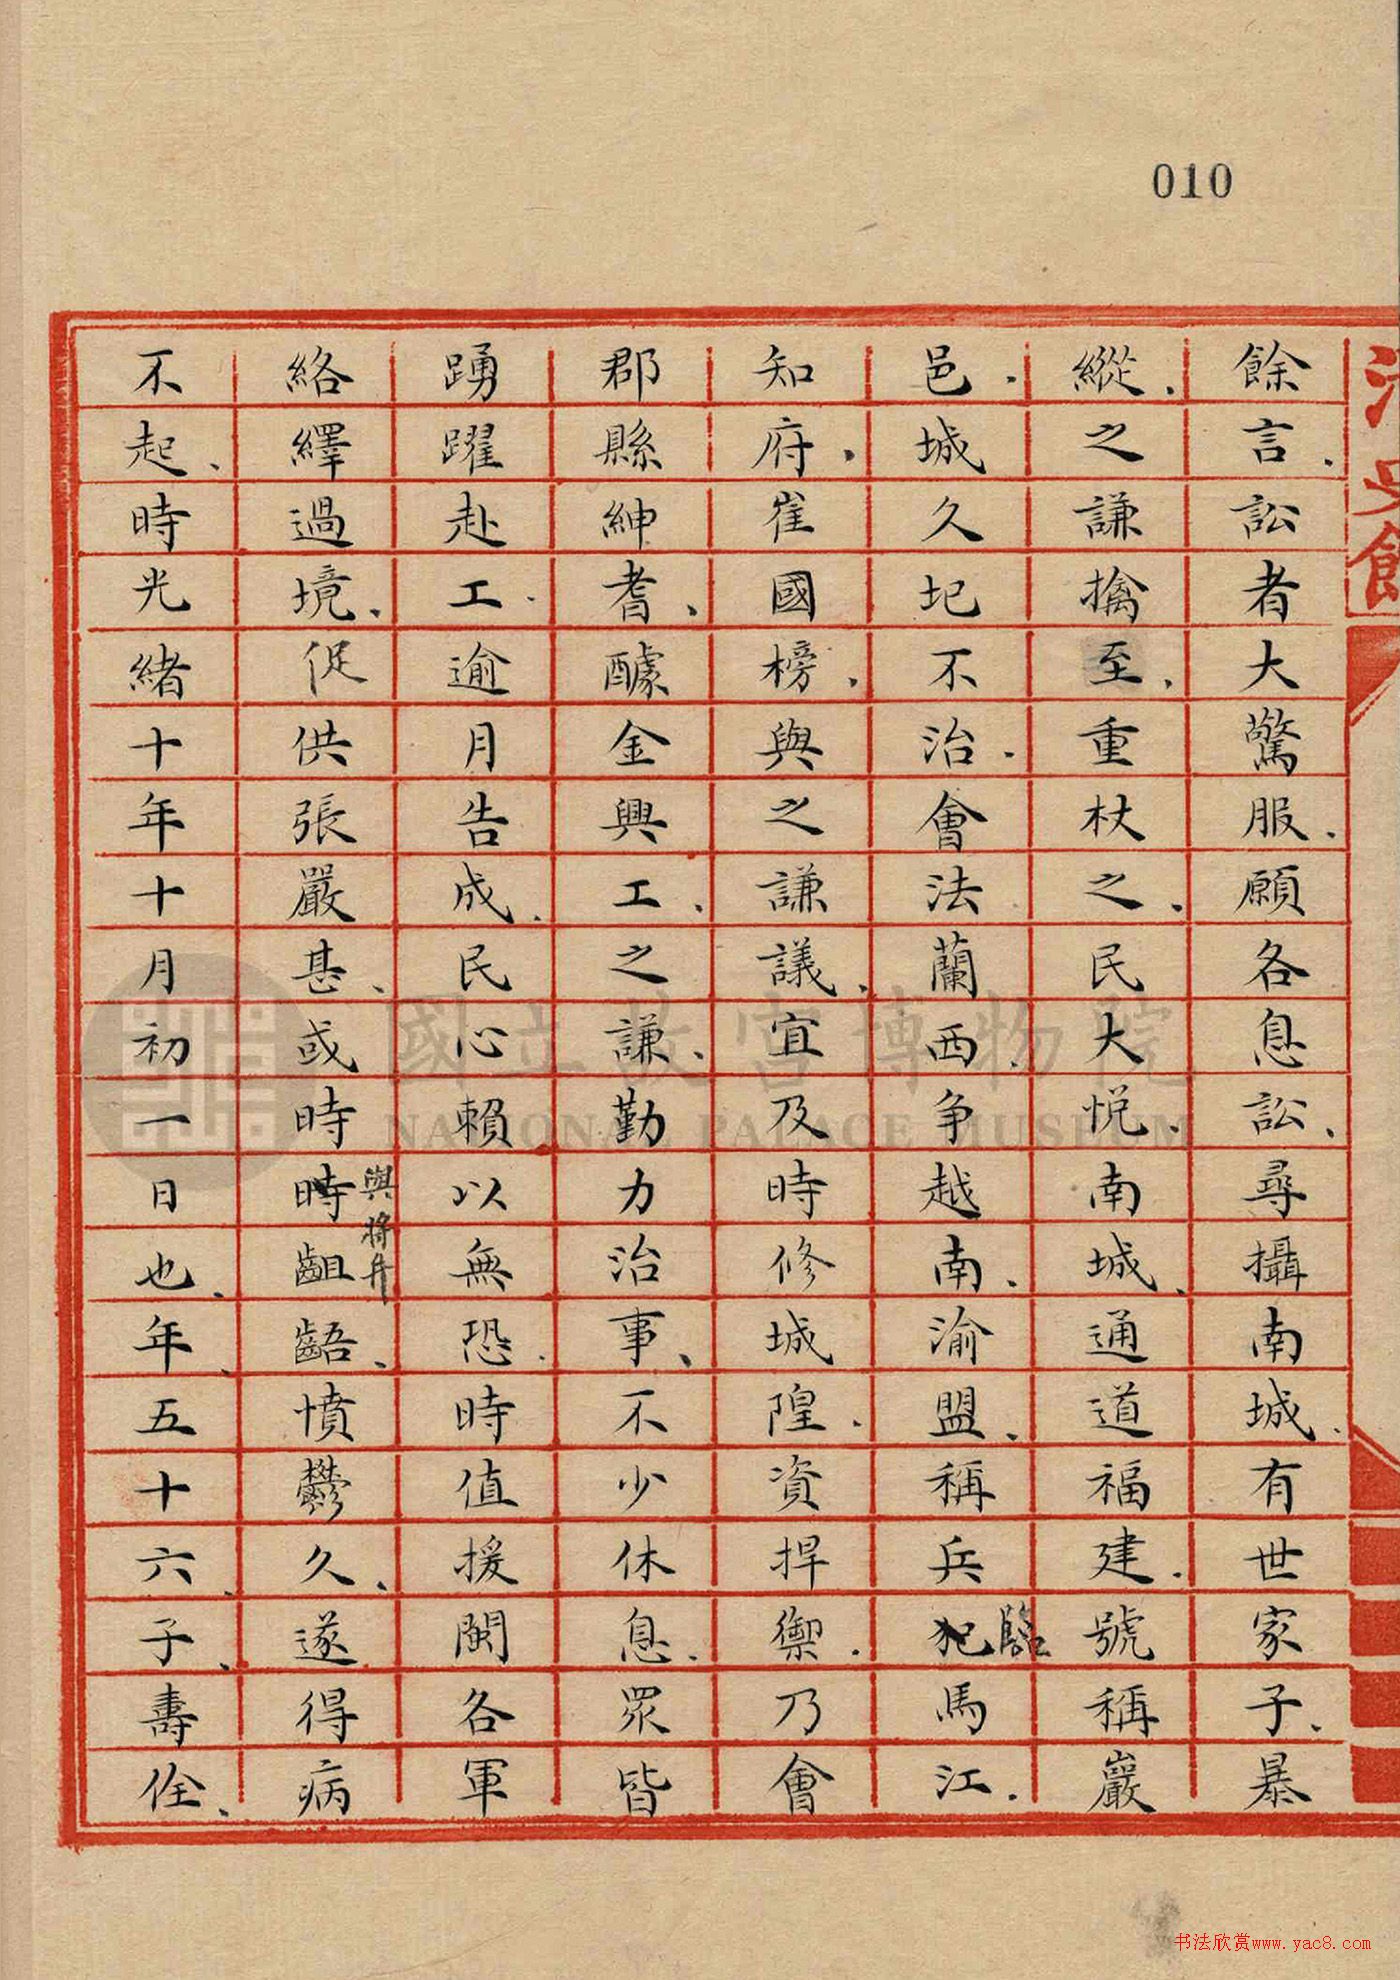 010
餘言、訟者大驚服、願各息訟、尋攝南城、有世家子、暴
縱、之謙擒至、重杖之、民大悅、南城、通道福建、號稱巖
邑、城久圮不治、會法蘭西、争越南、渝盟、稱兵犯臨馬江、
知府、崔國榜、與之謙議、宜及時修城隍、資捍禦、乃會
郡縣紳耆、醵金興工、之謙、勤力治事、不少休息、眾皆
踴躍赴工、逾月告成、民心賴以無恐、時值援閩各軍
絡繹過境、促供張嚴甚、或時時與將弁齟齬、憤鬱久、遂得病
不起、時光緒十年十月初一日也、年、五十六、子、壽佺、
國立故宮博物院
NATIONAL PALACE MUSEUM
书法欣赏www.yac8.com